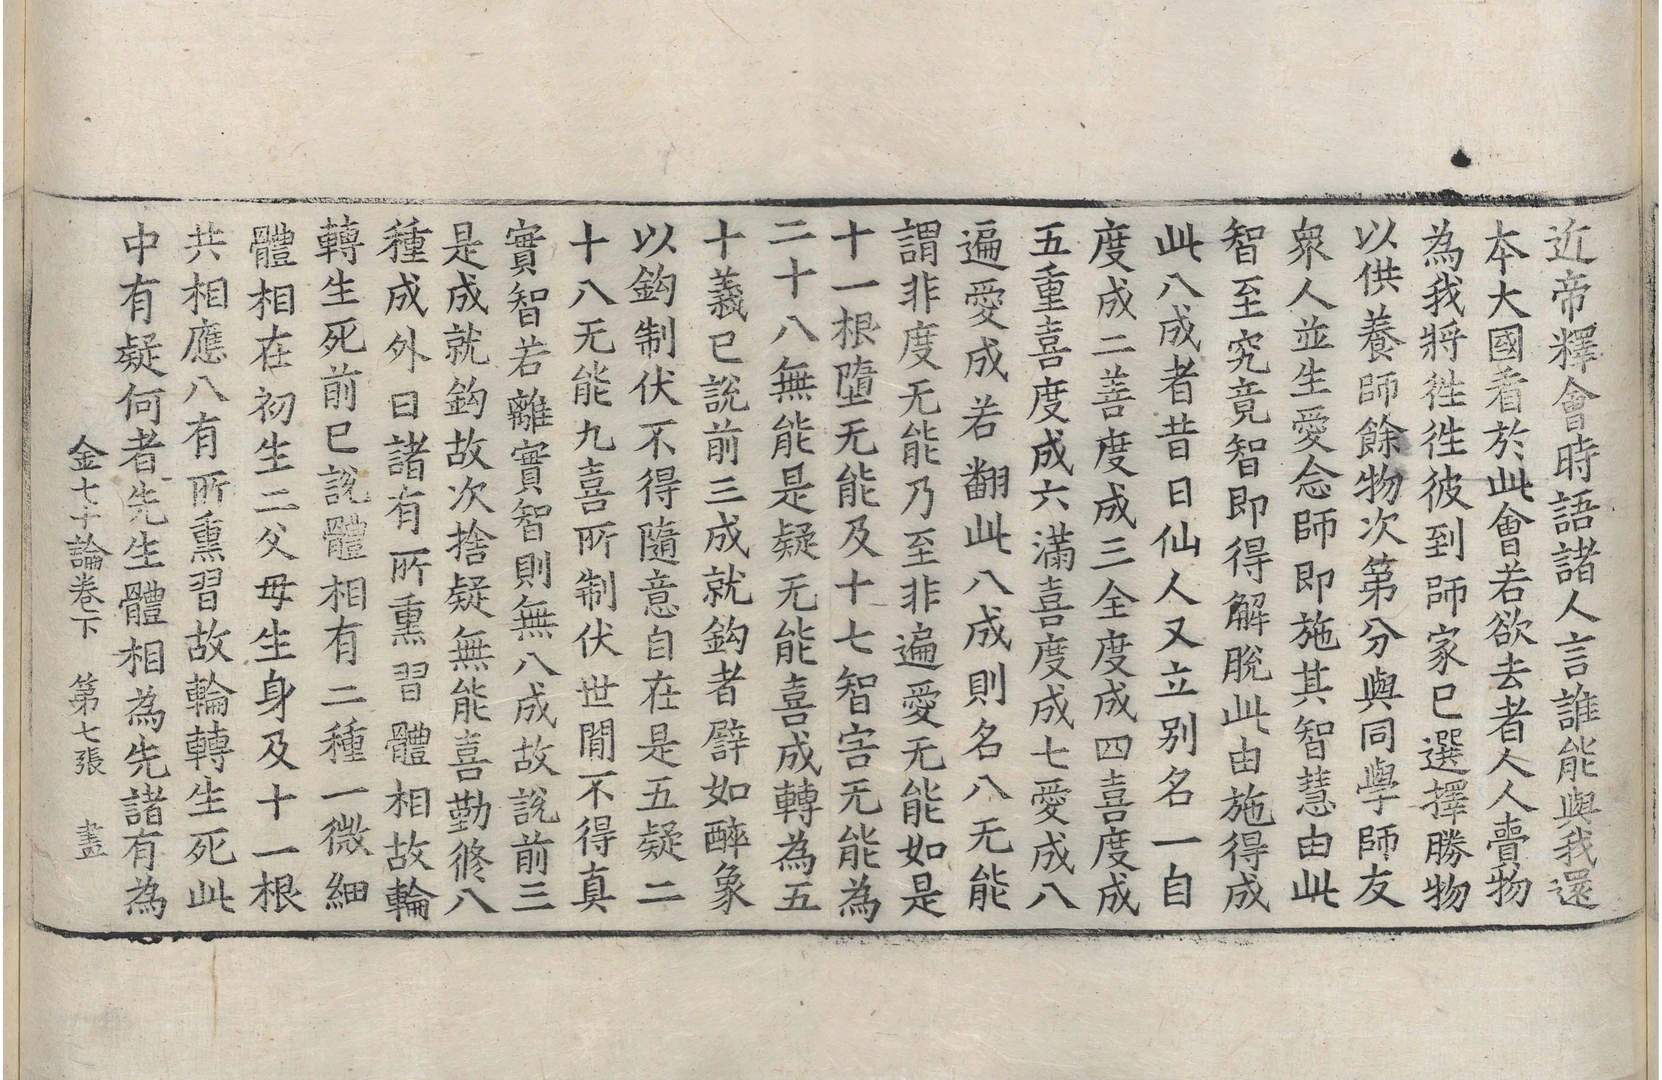 近帝釋會時語諸人言誰能與我還
本大國看於此會若欲去者人人賷物
為我將徃徃彼到師家已選擇勝物
以供養師餘物次第分與同學師友
衆人並生愛念師即施其智慧由此
智至究竟智即得解脫此由施得成
此八成者昔日仙人又立別名一自
度成二善度成三全度成四喜度成
五重喜度成六滿喜度成七愛成八
遍愛成若翻此八成則名八无能
謂非度无能乃至非遍愛无能如是
十一根墮无能及十七智害无能為
二十八無能是疑无能喜成轉為五
十義已說前三成就鈎者譬如醉象
以鈎制伏不得隨意自在是五疑二
十八无能九喜所制伏世間不得真
實智若離實智則無八成故說前三
是成就鈎故次捨疑無能喜勤脩八
種成外曰諸有所熏習體相故輪
轉生死前已說體相有二種一微細
體相在初生二父母生身及十一根
共相應八有所熏習故輪轉生死此
中有疑何者先生體相為先諸有為
金七十論卷下　第七張　畫